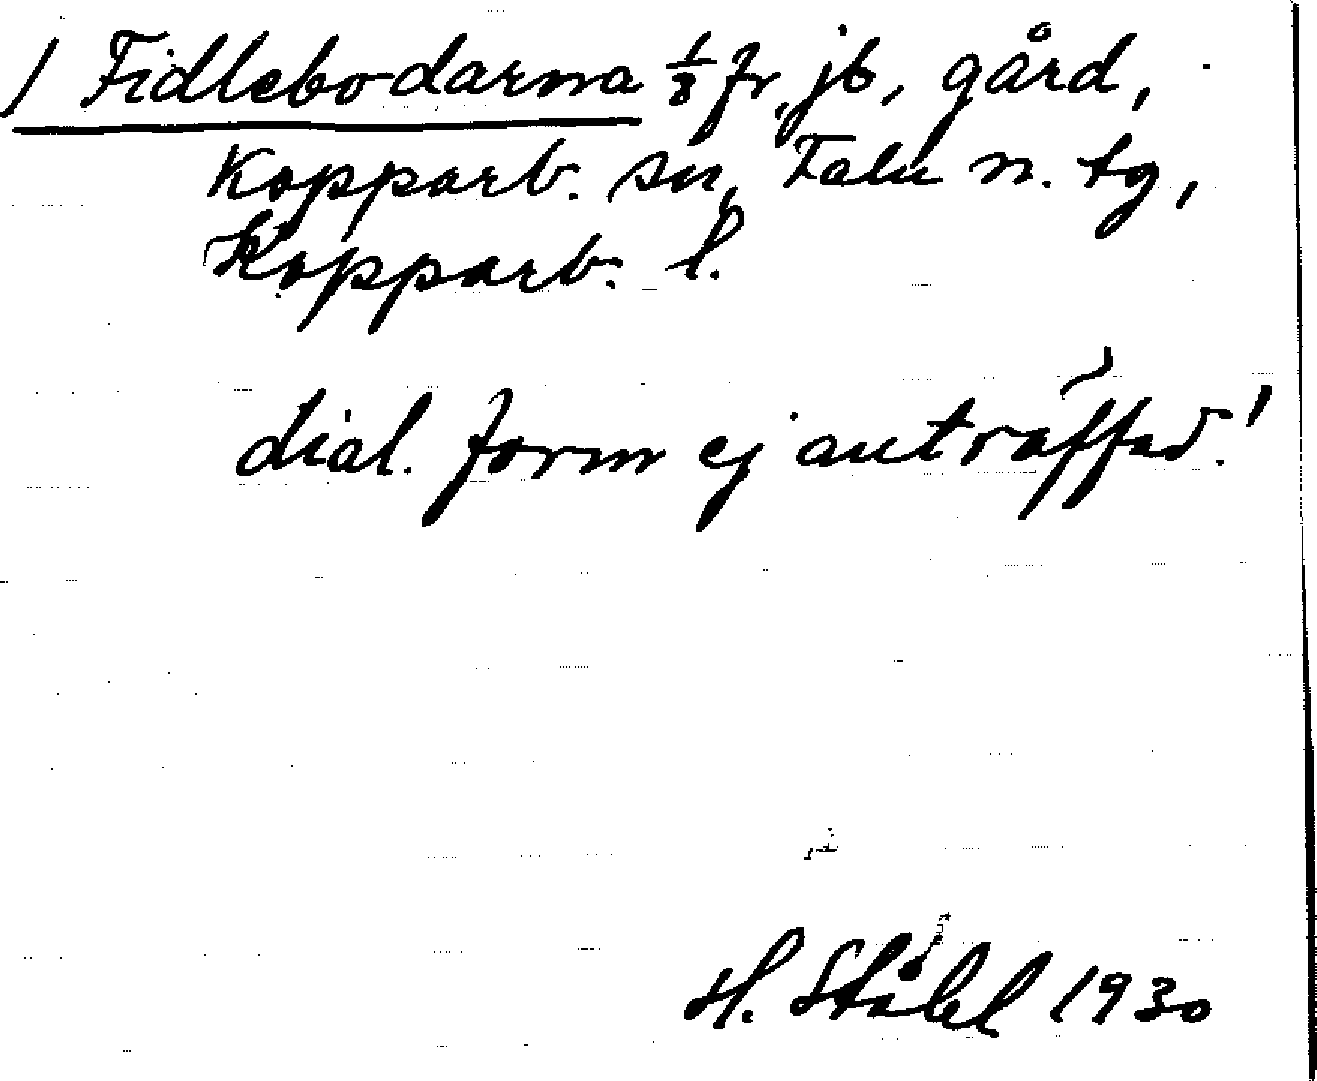 / Fidlebodarna 1/8 fr, jb, gård,
Kopparb. sn, Falu n. tg,
Kopparb. l.
dial. form ej anträffad!
H. Ståhl 1930